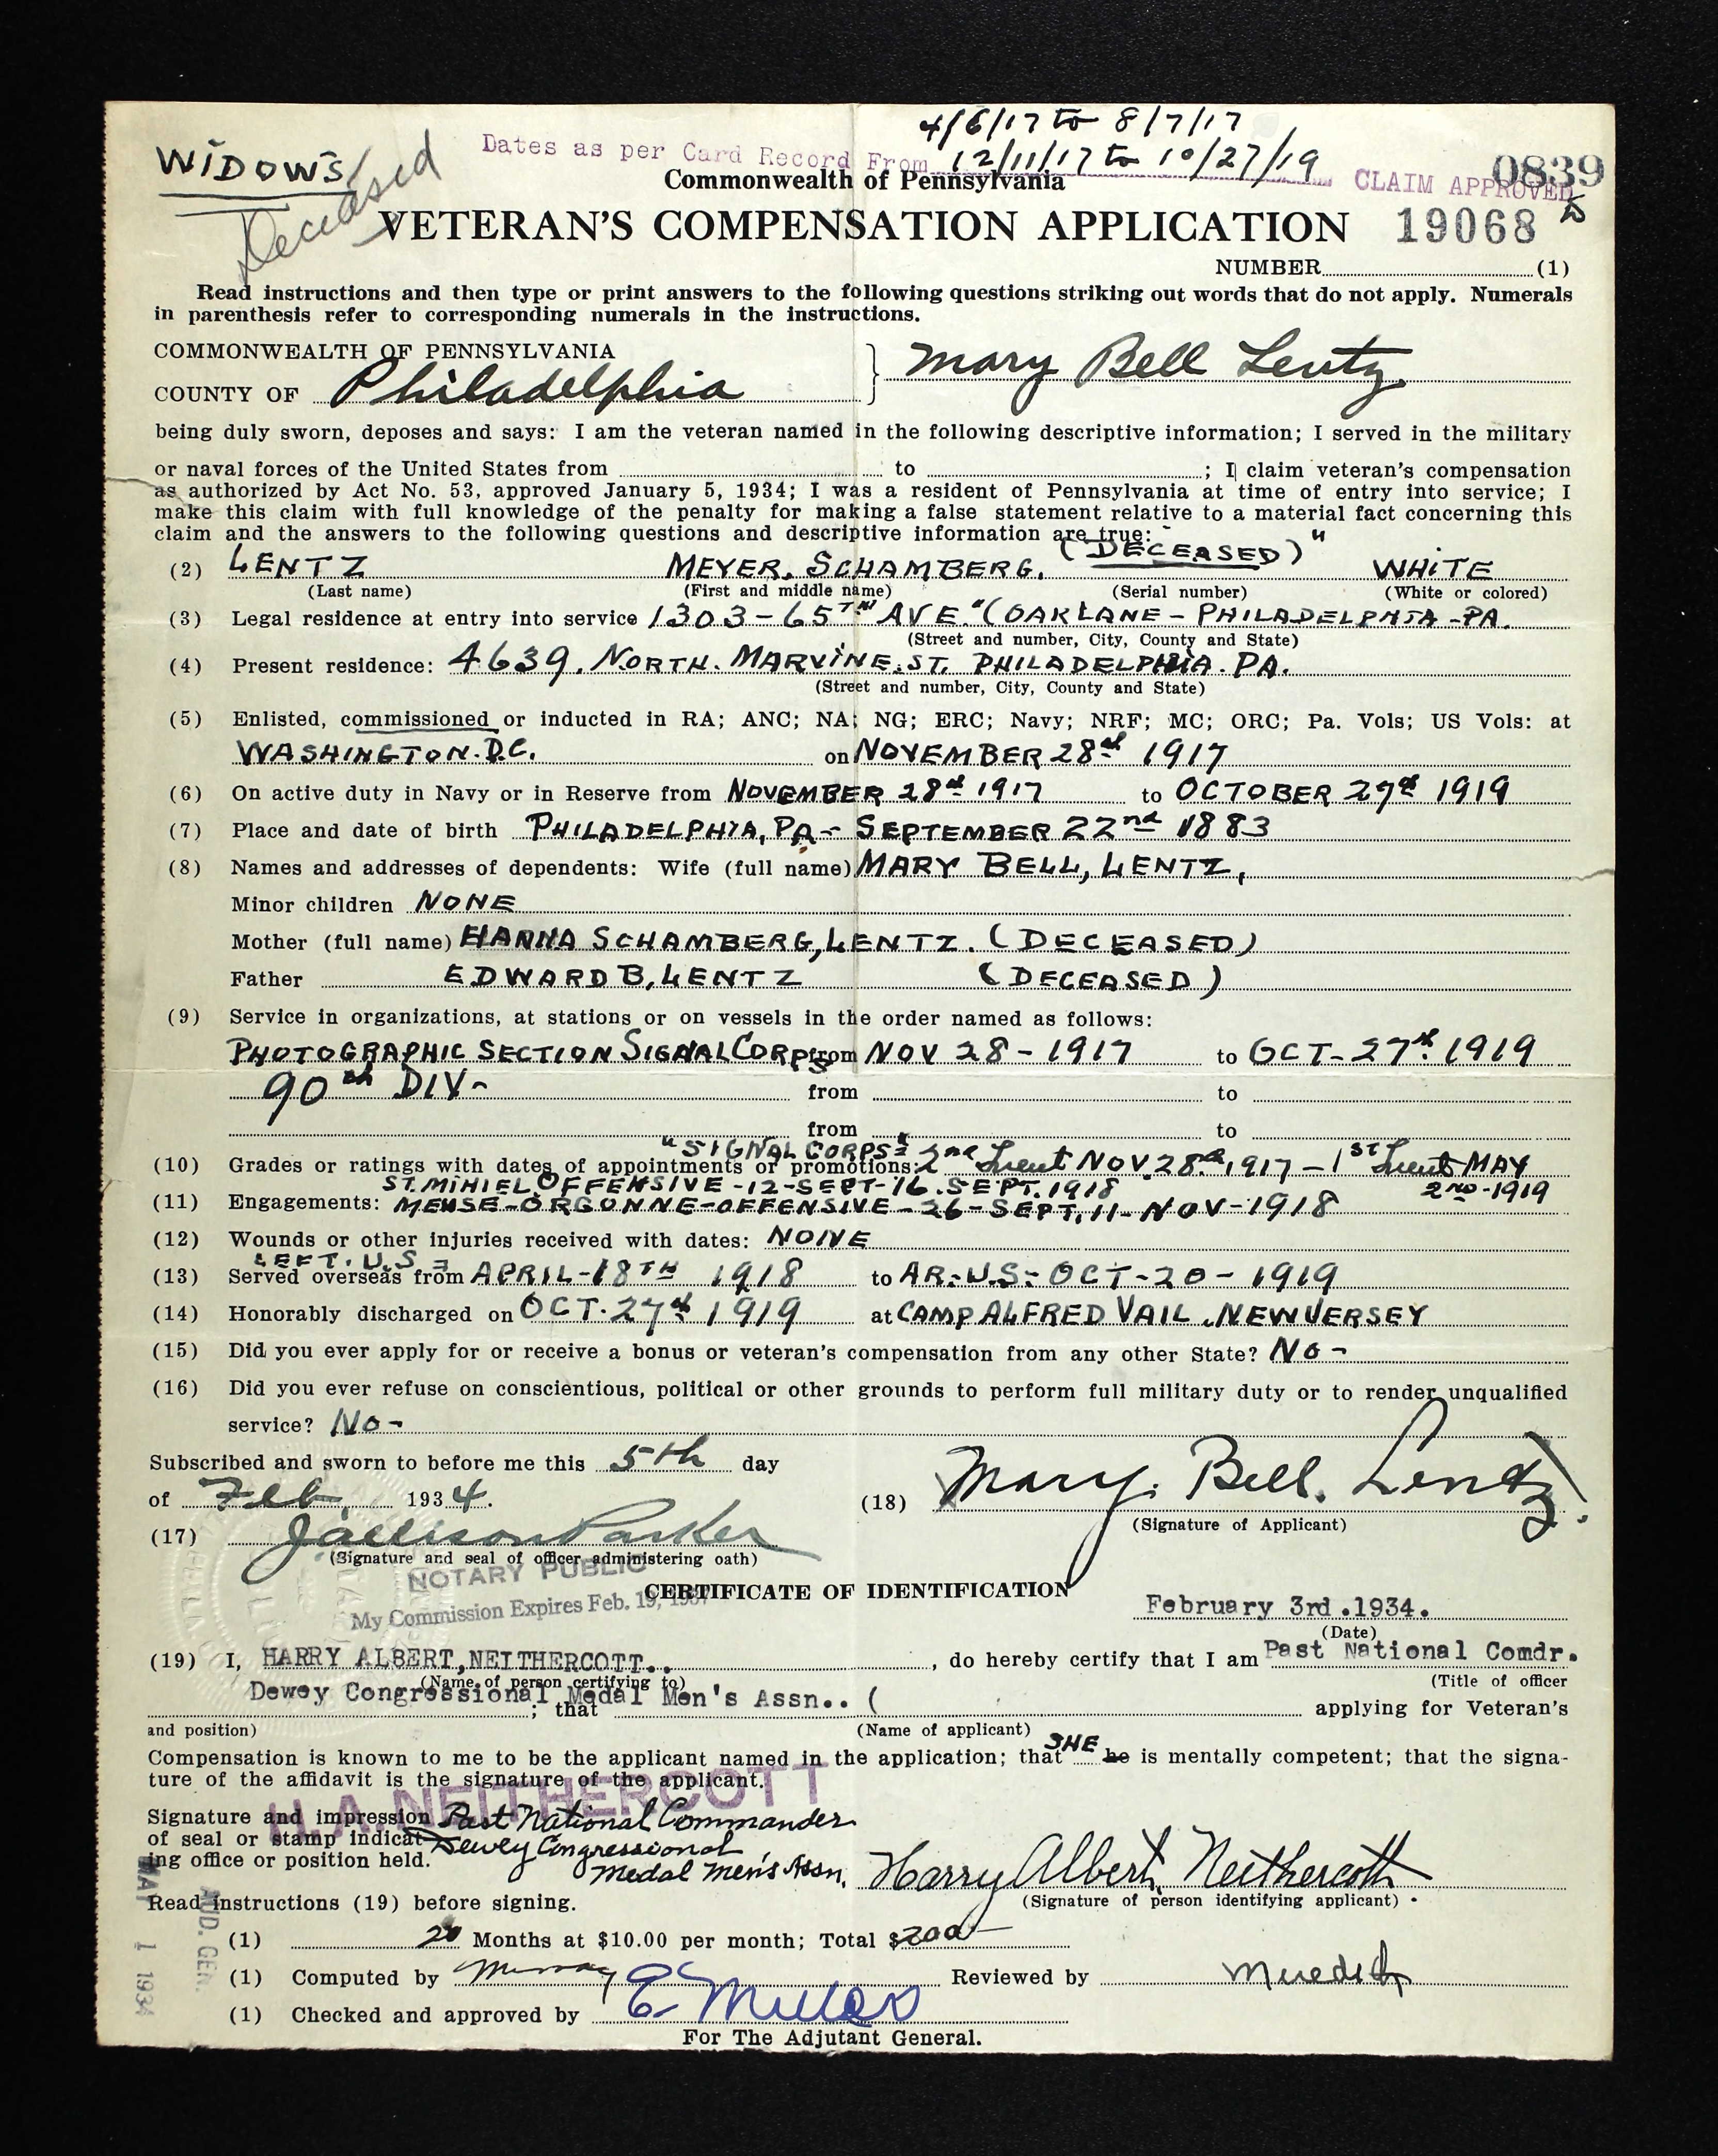 4/6/17 to 8/7/17
WIDOWS
Deceased
Dates as per Card Record From 12/11/17 to 10/27/19
CLAIM APPROVED
0839
Commonwealth of Pennsylvania
VETERAN'S COMPENSATION APPLICATION
19068
NUMBER (1)
Read instructions and then type or print answers to the following questions striking out words that do not apply. Numerals
in parenthesis refer to corresponding numerals in the instructions.
COMMONWEALTH OF PENNSYLVANIA
COUNTY OF Philadelphia } Mary Bell Lentz
being duly sworn, deposes and says: I am the veteran named in the following descriptive information; I served in the military
or naval forces of the United States from to ; I claim veteran's compensation
as authorized by Act No. 53, approved January 5, 1934; I was a resident of Pennsylvania at time of entry into service; I
make this claim with full knowledge of the penalty for making a false statement relative to a material fact concerning this
claim and the answers to the following questions and descriptive information are true:
(2) LENTZ MEYER. SCHAMBERG. (DECEASED)" WHITE
(Last name) (First and middle name) (Serial number) (White or colored)
(3) Legal residence at entry into service 1303-65TH AVE."(OAKLANE-PHILADELPHIA-PA.
(Street and number, City, County and State)
(4) Present residence: 4639. NORTH. MARVINE. ST. PHILADELPHIA. PA.
(Street and number, City, County and State)
(5) Enlisted, commissioned or inducted in RA; ANC; NA; NG; ERC; Navy; NRF; MC; ORC; Pa. Vols; US Vols: at
WASHINGTON. D.C. on NOVEMBER 28th 1917
(6) On active duty in Navy or in Reserve from NOVEMBER 28th 1917 to OCTOBER 27th 1919
(7) Place and date of birth PHILADELPHIA, PA - SEPTEMBER 22nd 1883
(8) Names and addresses of dependents: Wife (full name) MARY BELL, LENTZ,
Minor children NONE
Mother (full name) HANNA SCHAMBERG, LENTZ. (DECEASED)
Father EDWARD B. LENTZ (DECEASED)
(9) Service in organizations, at stations or on vessels in the order named as follows:
PHOTOGRAPHIC SECTION SIGNAL CORPS from NOV 28-1917 to OCT-27th. 1919
90th DIV- from to
from to
"SIGNAL CORPS"
(10) Grades or ratings with dates of appointments or promotions: 2nd Lieut NOV. 28th. 1917 - 1ST Lieut MAY
2ND-1919
ST. MIHIEL OFFENSIVE-12-SEPT-16. SEPT. 1918
(11) Engagements: MEUSE-ORGONNE-OFFENSIVE-26-SEPT. 11-NOV-1918
(12) Wounds or other injuries received with dates: NONE
LEFT. U.S=
(13) Served overseas from APRIL-18TH 1918 to AR-U.S-OCT-20-1919
(14) Honorably discharged on OCT. 27th 1919 at CAMP ALFRED VAIL. NEW JERSEY
(15) Did you ever apply for or receive a bonus or veteran's compensation from any other State? NO-
(16) Did you ever refuse on conscientious, political or other grounds to perform full military duty or to render unqualified
service? NO-
Subscribed and sworn to before me this 5th day
of Feb. 1934.
(18) Mary. Bell. Lentz.
(Signature of Applicant)
(17) Jallison Parker
(Signature and seal of officer administering oath)
NOTARY PUBLIC
My Commission Expires Feb. 19, 1937
CERTIFICATE OF IDENTIFICATION
February 3rd .1934.
(Date)
(19) I, HARRY ALBERT,NEITHERCOTT.. , do hereby certify that I am Past National Comdr.
(Name of person certifying to) (Title of officer
Dewey Congressional Medal Men's Assn.. (
; that applying for Veteran's
and position) (Name of applicant)
Compensation is known to me to be the applicant named in the application; that SHE he is mentally competent; that the signa-
ture of the affidavit is the signature of the applicant.
H.A. NEITHERCOTT
Signature and impression Past National Commander
of seal or stamp indicat- Dewey Congressional
ing office or position held. Medal Men's Assn.
Harry Albert Neithercott
(Signature of person identifying applicant)
Read instructions (19) before signing.
(1) 20 Months at $10.00 per month; Total $200-
(1) Computed by Murray Reviewed by Meredith
(1) Checked and approved by E. Miller
For The Adjutant General.
AUD. GEN.
MAY 1 1934